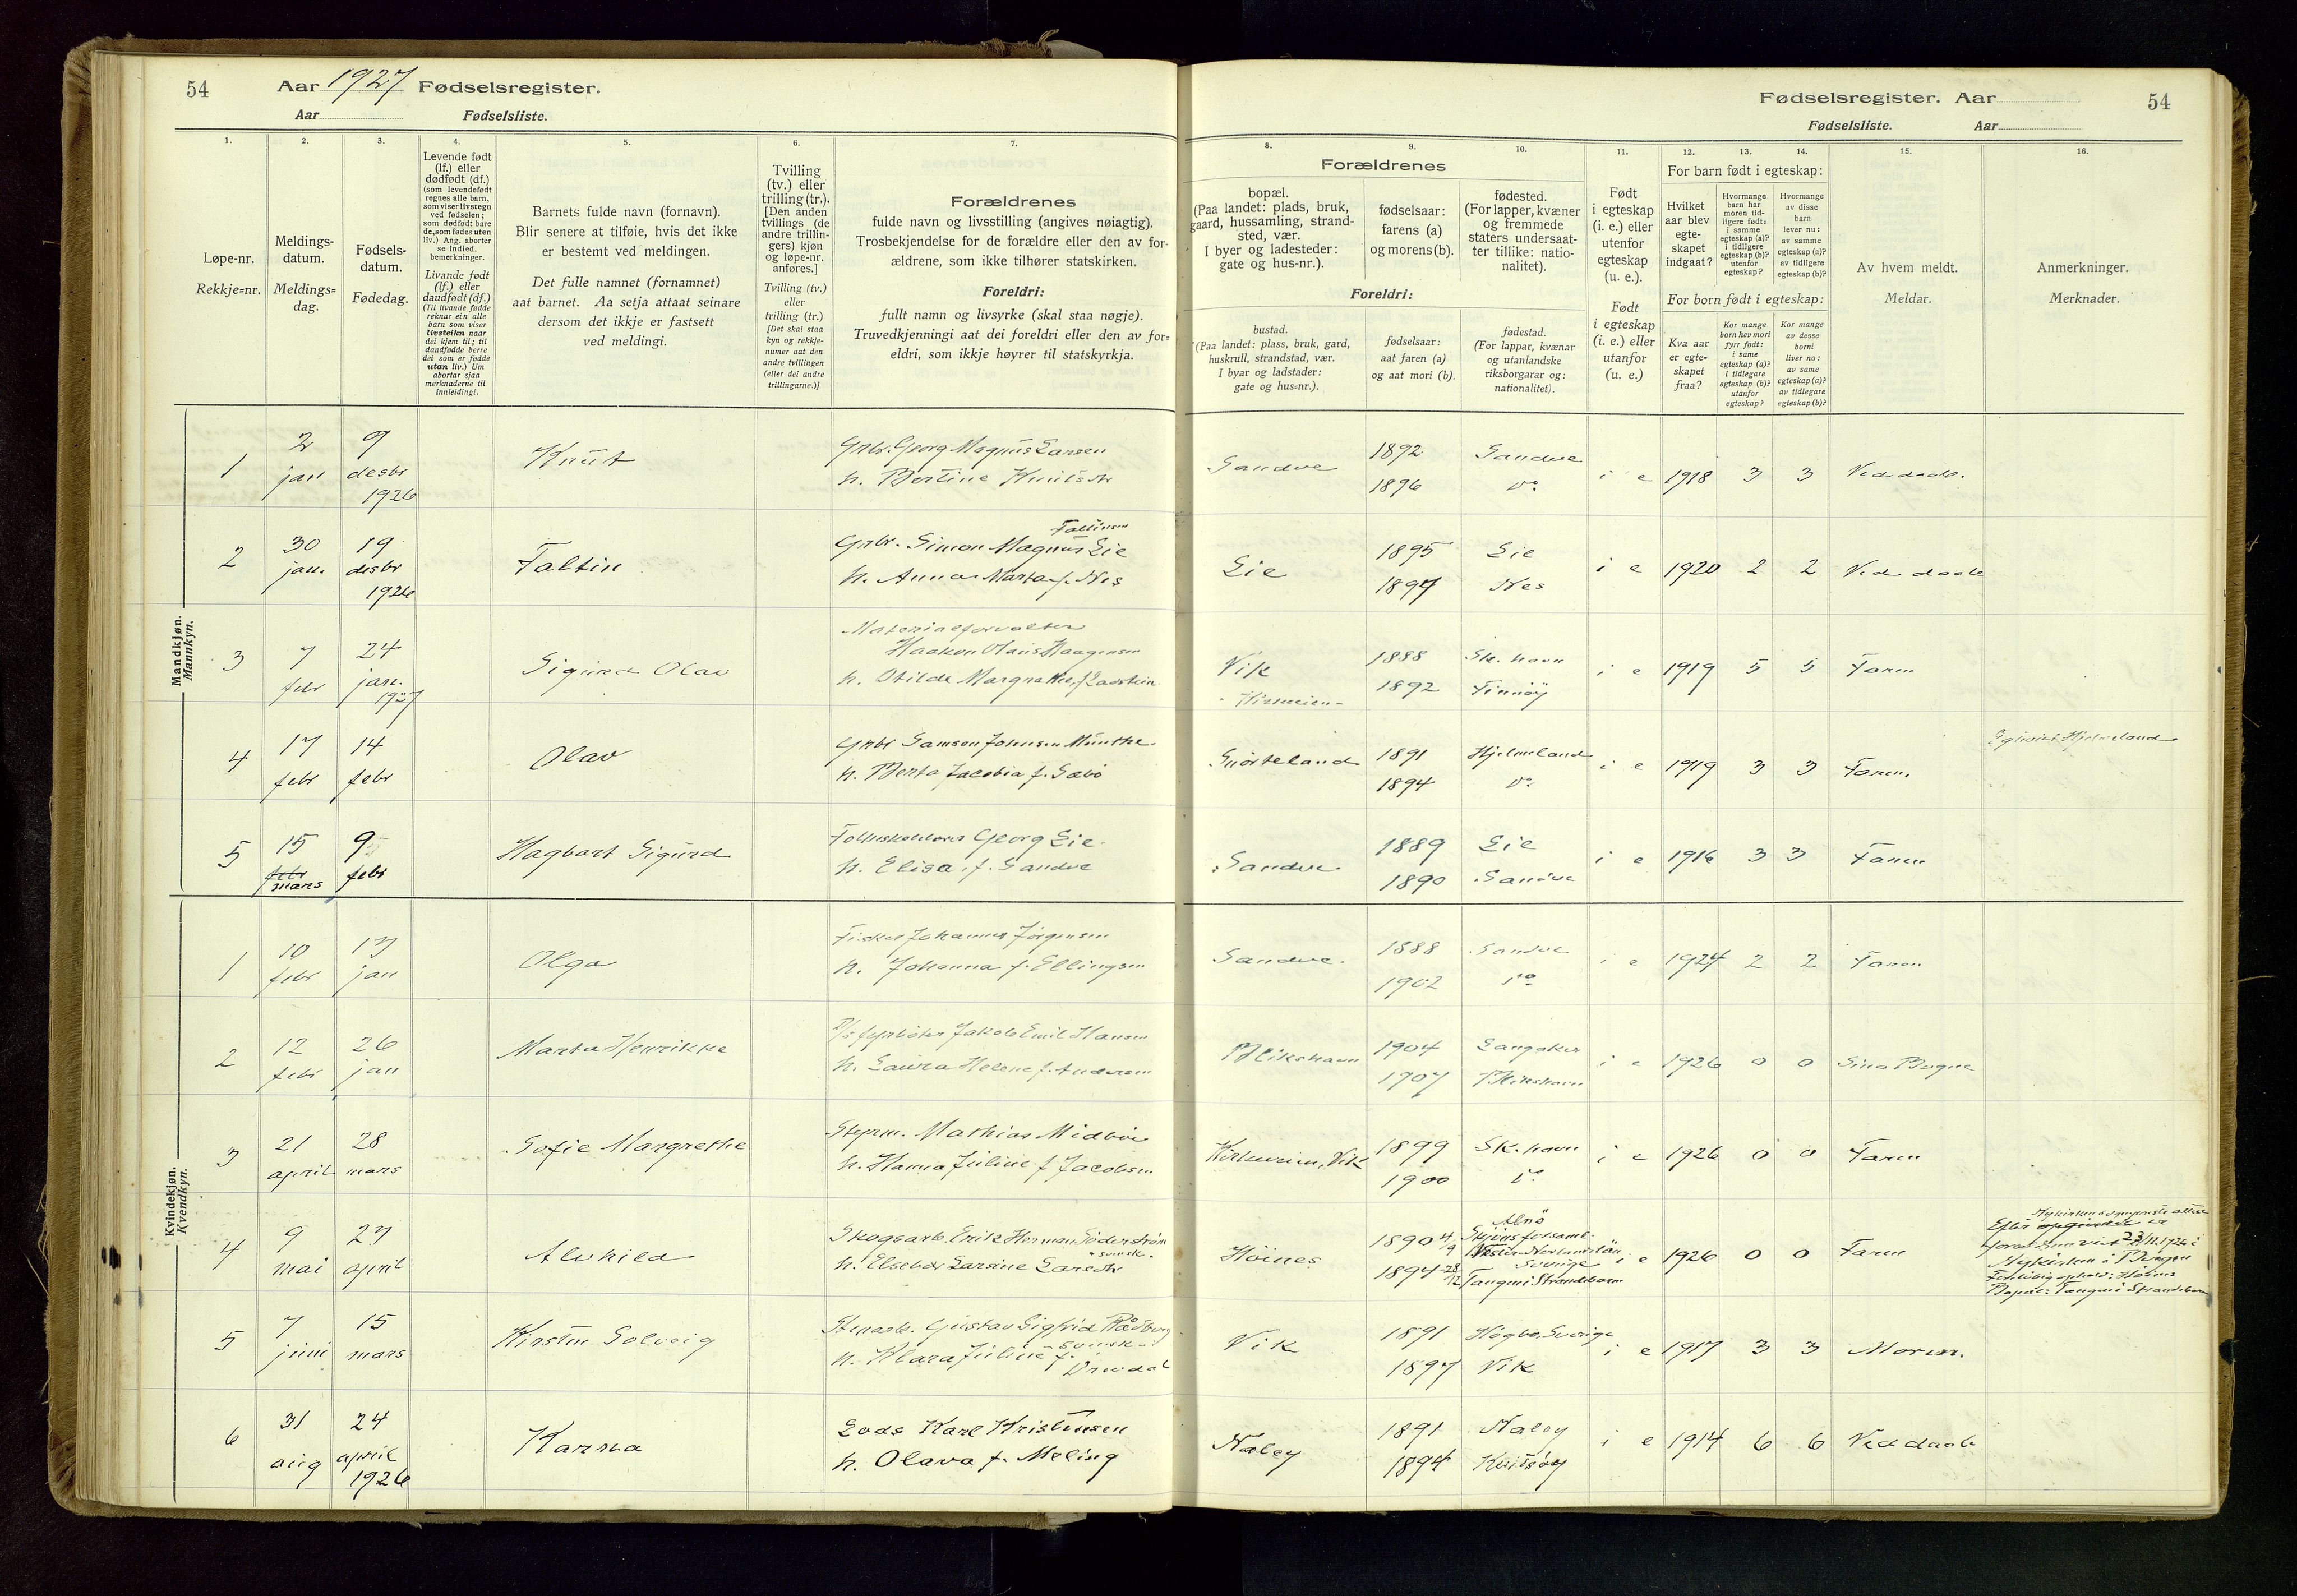 54
Aar 1927 Fødselsregister.
Aar Fødselsliste.
Fødselsregister. Aar
54
Fødselsliste. Aar
1.
Løpe-nr.
Rekkje=nr.
2.
Meldings-
datum.
Meldings=
dag.
3.
Fødsels-
datum.
Fødedag.
4.
Levende født
(lf.) eller
dødfødt (df.)
(som levendefødt
regnes alle barn,
som viser livstegn
ved fødselen;
som dødfødt bare
de, som fødes uten
liv.) Ang. aborter
se indled.
bemerkninger.
Livande født
(lf.) eller
daudfødt (df.)
(Til livande fødde
reknar ein alle
barn som viser
livsteikn naar
dei kjem til; til
daudfødde berre
dei som er fødde
utan liv.) Um
abortar sjaa
merknaderne til
innleidingi.
5.
Barnets fulde navn (fornavn).
Blir senere at tilføie, hvis det ikke
er bestemt ved meldingen.
Det fulle namnet (fornamnet)
aat barnet. Aa setja attaat seinare
dersom det ikkje er fastsett
ved meldingi.
6.
Tvilling
(tv.) eller
trilling (tr.).
[Den anden
tvillings (de
andre trillin-
gers) kjøn
og løpe-nr.
anføres.]
Tvilling (tv.)
eller
trilling (tr.)
[Det skal staa
kyn og rekkje-
numer aat den
andre tvillingen
(eller dei andre
trillingarne.)]
7.
Forældrenes
fulde navn og livsstilling (angives nøiagtig).
Trosbekjendelse for de forældre eller den av for-
ældrene, som ikke tilhører statskirken.
Foreldri:
fullt namn og livsyrke (skal staa nøgje).
Truvedkjenningi aat dei foreldri eller den av for=
eldri, som ikkje høyrer til statskyrkja.
Forældrenes
8.
bopæl.
(Paa landet: plads, bruk,
gaard, hussamling, strand-
sted, vær.
I byer og ladesteder:
gate og hus-nr.).
9.
fødselsaar:
farens (a)
og morens (b).
10.
fødested.
(For lapper, kvæner
og fremmede
staters undersaat-
ter tillike: natio-
nalitet).
Foreldri:
bustad.
(Paa landet: plass, bruk, gard,
huskrull, strandstad, vær.
I byar og ladstader:
gate og hus=nr.).
fødselsaar:
aat faren (a)
og aat mori (b).
fødestad.
(For lappar, kvænar
og utanlandske
riksborgarar og:
nationalitet).
11.
Født
i egteskap
(i. e.) eller
utenfor
egteskap
(u. e.).
Født
i egteskap
(i. e.) eller
utanfor
(u. e.)
12. 13. 14.
For barn født i egteskap:
Hvilket
aar blev
egte-
skapet
indgaat?
Hvormange
barn har
moren tid-
ligere født:
i samme
egteskap (a)?
i tidligere
egteskap (b)?
utenfor
egteskap?
Hvormange
av disse
barn
lever nu:
av samme
egteskap (a)?
av tidligere
egteskap (b)?
For born født i egteskap:
Kva aar
er egte=
skapet
fraa?
Kor mange
born hev mori
fyrr født:
i same
egteskap (a)?
i tidlegare
egteskap (b)?
utanfor
egteskap?
Kor mange
av desse
borni
liver no:
av same
egteskap (a)?
av tidlegare
egteskap (b)?
15.
Av hvem meldt.
Meldar.
16.
Anmerkninger.
Merknader.
Mandkjøn.
Mannkyn.
1
2 jan
9 desbr 1926
Knut
Grbr. Georg Magnus Larsen
h. Bertine Knutsdtr
Sandve
1892 Sandve
1896 do
i e 1918 3 3 Ved daab.
2
30 jan.
19 desbr 1926
Faltin
Grbr. Simon Magnus Faltinsen Lie
h. Anna Marta f. Nes
Lie
1895 Lie
1897 Nes
i e 1920 2 2 Ved daab
3
7 febr
24 jan. 1927
Sigurd Olav
Materialforvalter
Haakon Olaus Haagensen
h. Otilde Margrethe f. Ladstein
Vik
1888 Sk.havn
1892 Finnöy
i e 1919 5 5 Faren
4
17 febr
14 febr
Olav
Grbr Samson Johnsen Munthe
h. Berta Jacobia f. Sæbö
Snörteland
1891 Hjelmeland
1894 do
i e 1919 3 3 Faren.
Hjelmeland
5
15 febr mars
9 febr
Hagbart Sigurd
Georg Lie
h. Elisa f. Sandve
Sandve
1889 Lie
1890 Sandve
i e 1916 3 3 Faren
Kvindekjøn.
Kvendkyn.
1
10 febr
13 jan
Olga
Fisker Johannes Jörgensen
h. Johanna f. Ellingsen
Sandve.
1888 Sandve
1902 do
i e 1924 2 2 Faren
2
12 febr
26 jan
Marta Henrikke
fyrböter Jakob Emil Hansen
h. Laura Helene f. Andersen
Blikshavn
1904 Langaker
1907 Blikshavn
i e 1926 0 0 Sina Bugne
3
21 april
28 mars
Sofie Margrethe
Styrm. Mathias Midböe
h. Hanna Juline f Jacobsen
Vik
1899 Sk.havn
1900 do
i e 1926 0 0 Faren
4
9 mai
27 april
Alvhild
Skogsarb. Erik Herman Söderström
svensk.
h. Elsebet Larsine Larsdtr
Höines
1890 4/9 Alnö
Skjöns forsaml.
Vester-Norlandslän
Sverige
1894 28/12 Tangen i Strandebarm
i e 1926 0 0 Faren
Nykirken i Bergen
Bopæl: Tangen i Strandebarm
5
7 juni
15 mars
Kirsten Solveig
Stenarb. Gustav Sigfrid Rådberg
svensk
h. Klara Juline f.
Vik
1891 Högbo, Sverige
1897 Vik
i e 1917 3 3 Moren.
6
31 aug
24 april 1926
Karna
Lods Karl Kristensen
h. Olava f. Meling
Naley
1891 Naley
1894 Kvitsöy
i e 1914 6 6 Ved daab